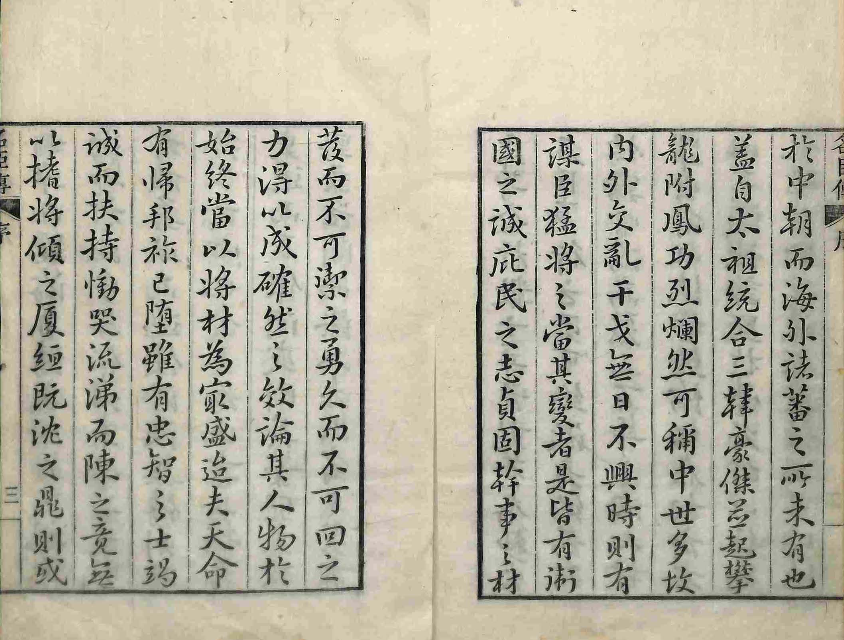 於中朝而海外諸蕃之所未有也
蓋自太祖統合三韓豪傑並起攀
龍附鳳功烈爛然可稱中世多故
内外交亂干戈無日不興時則有
謀臣猛將之當其變者是皆有術
國之誠庇民之志貞固幹事之材
名臣傳
序
而不可禦之勇久而不可回之
力得以成確然之效論其人物於
始終當以將材為寂盛迨夫天命
有歸邦祚已墮雖有忠智之士竭
誠而扶持慟哭流涕而陳之竟無
以搘將傾之厦綆既沈之鼎則或
名臣傳
序
三